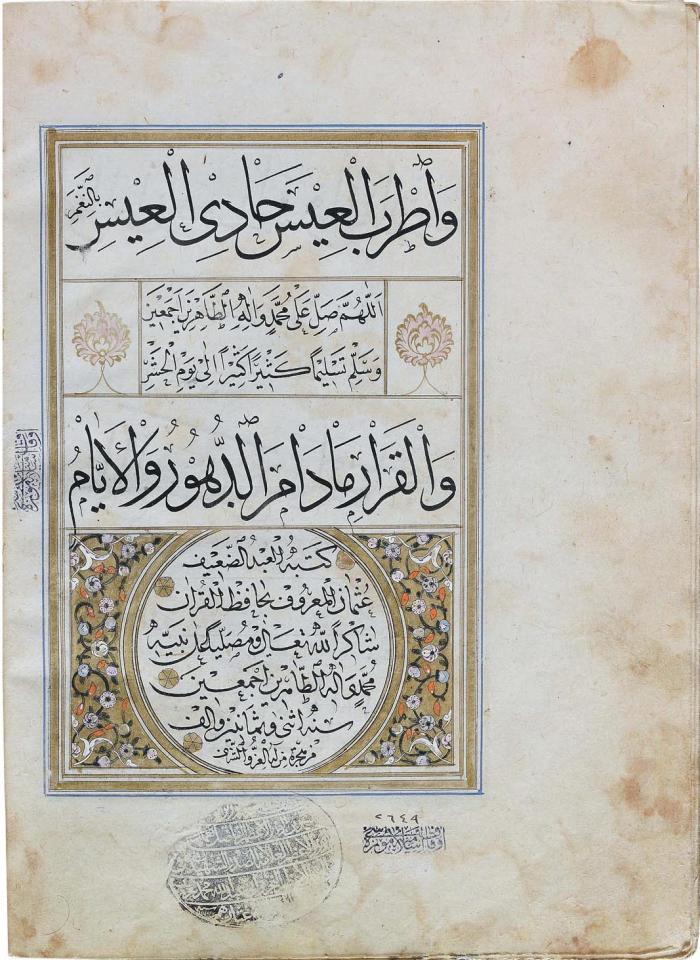 وَاَطْرَبَ الْعِيسَ حَادِى الْعِيسِ بِالنَّغَمِ
اَللّٰهُمَّ صَلِّ عَلٰى مُحَمَّدٍ وَاٰلِهِ الطَّاهِرِينَ اَجْمَعِينَ
وَسَلِّمْ تَسْلِيمًا كَثِيرًا كَثِيرًا اِلٰى يَوْمِ الْحَشْرِ
وَالْقَرَارِ مَا دَامَ الدُّهُورُ وَالْاَيَّامُ
كتبه العبد الضعيف
عثمان المعروف بحافظ القران
شاكرا لله تعالى ومصليا على نبيه
محمد واله الطاهرين اجمعين
سنه اثنى وثمانين والف
من هجرة من له العز والشرف
٢٦٤٩